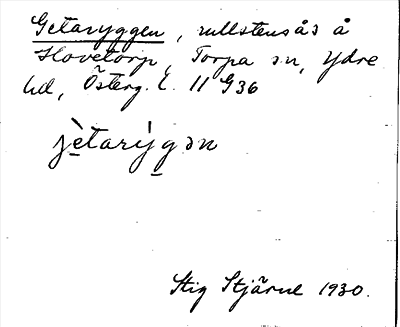 Getaryggen, rullstensås å
Hovetorp, Torpa sn, Ydre
hd, Österg. l. 11 G36
jètarýgən
Stig Stjärne 1930.